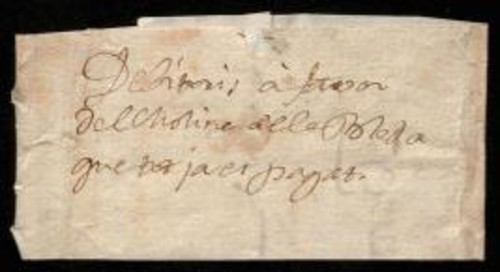 Debitoris à favor
del Moline de la Bleda
que tot ja es pagat.